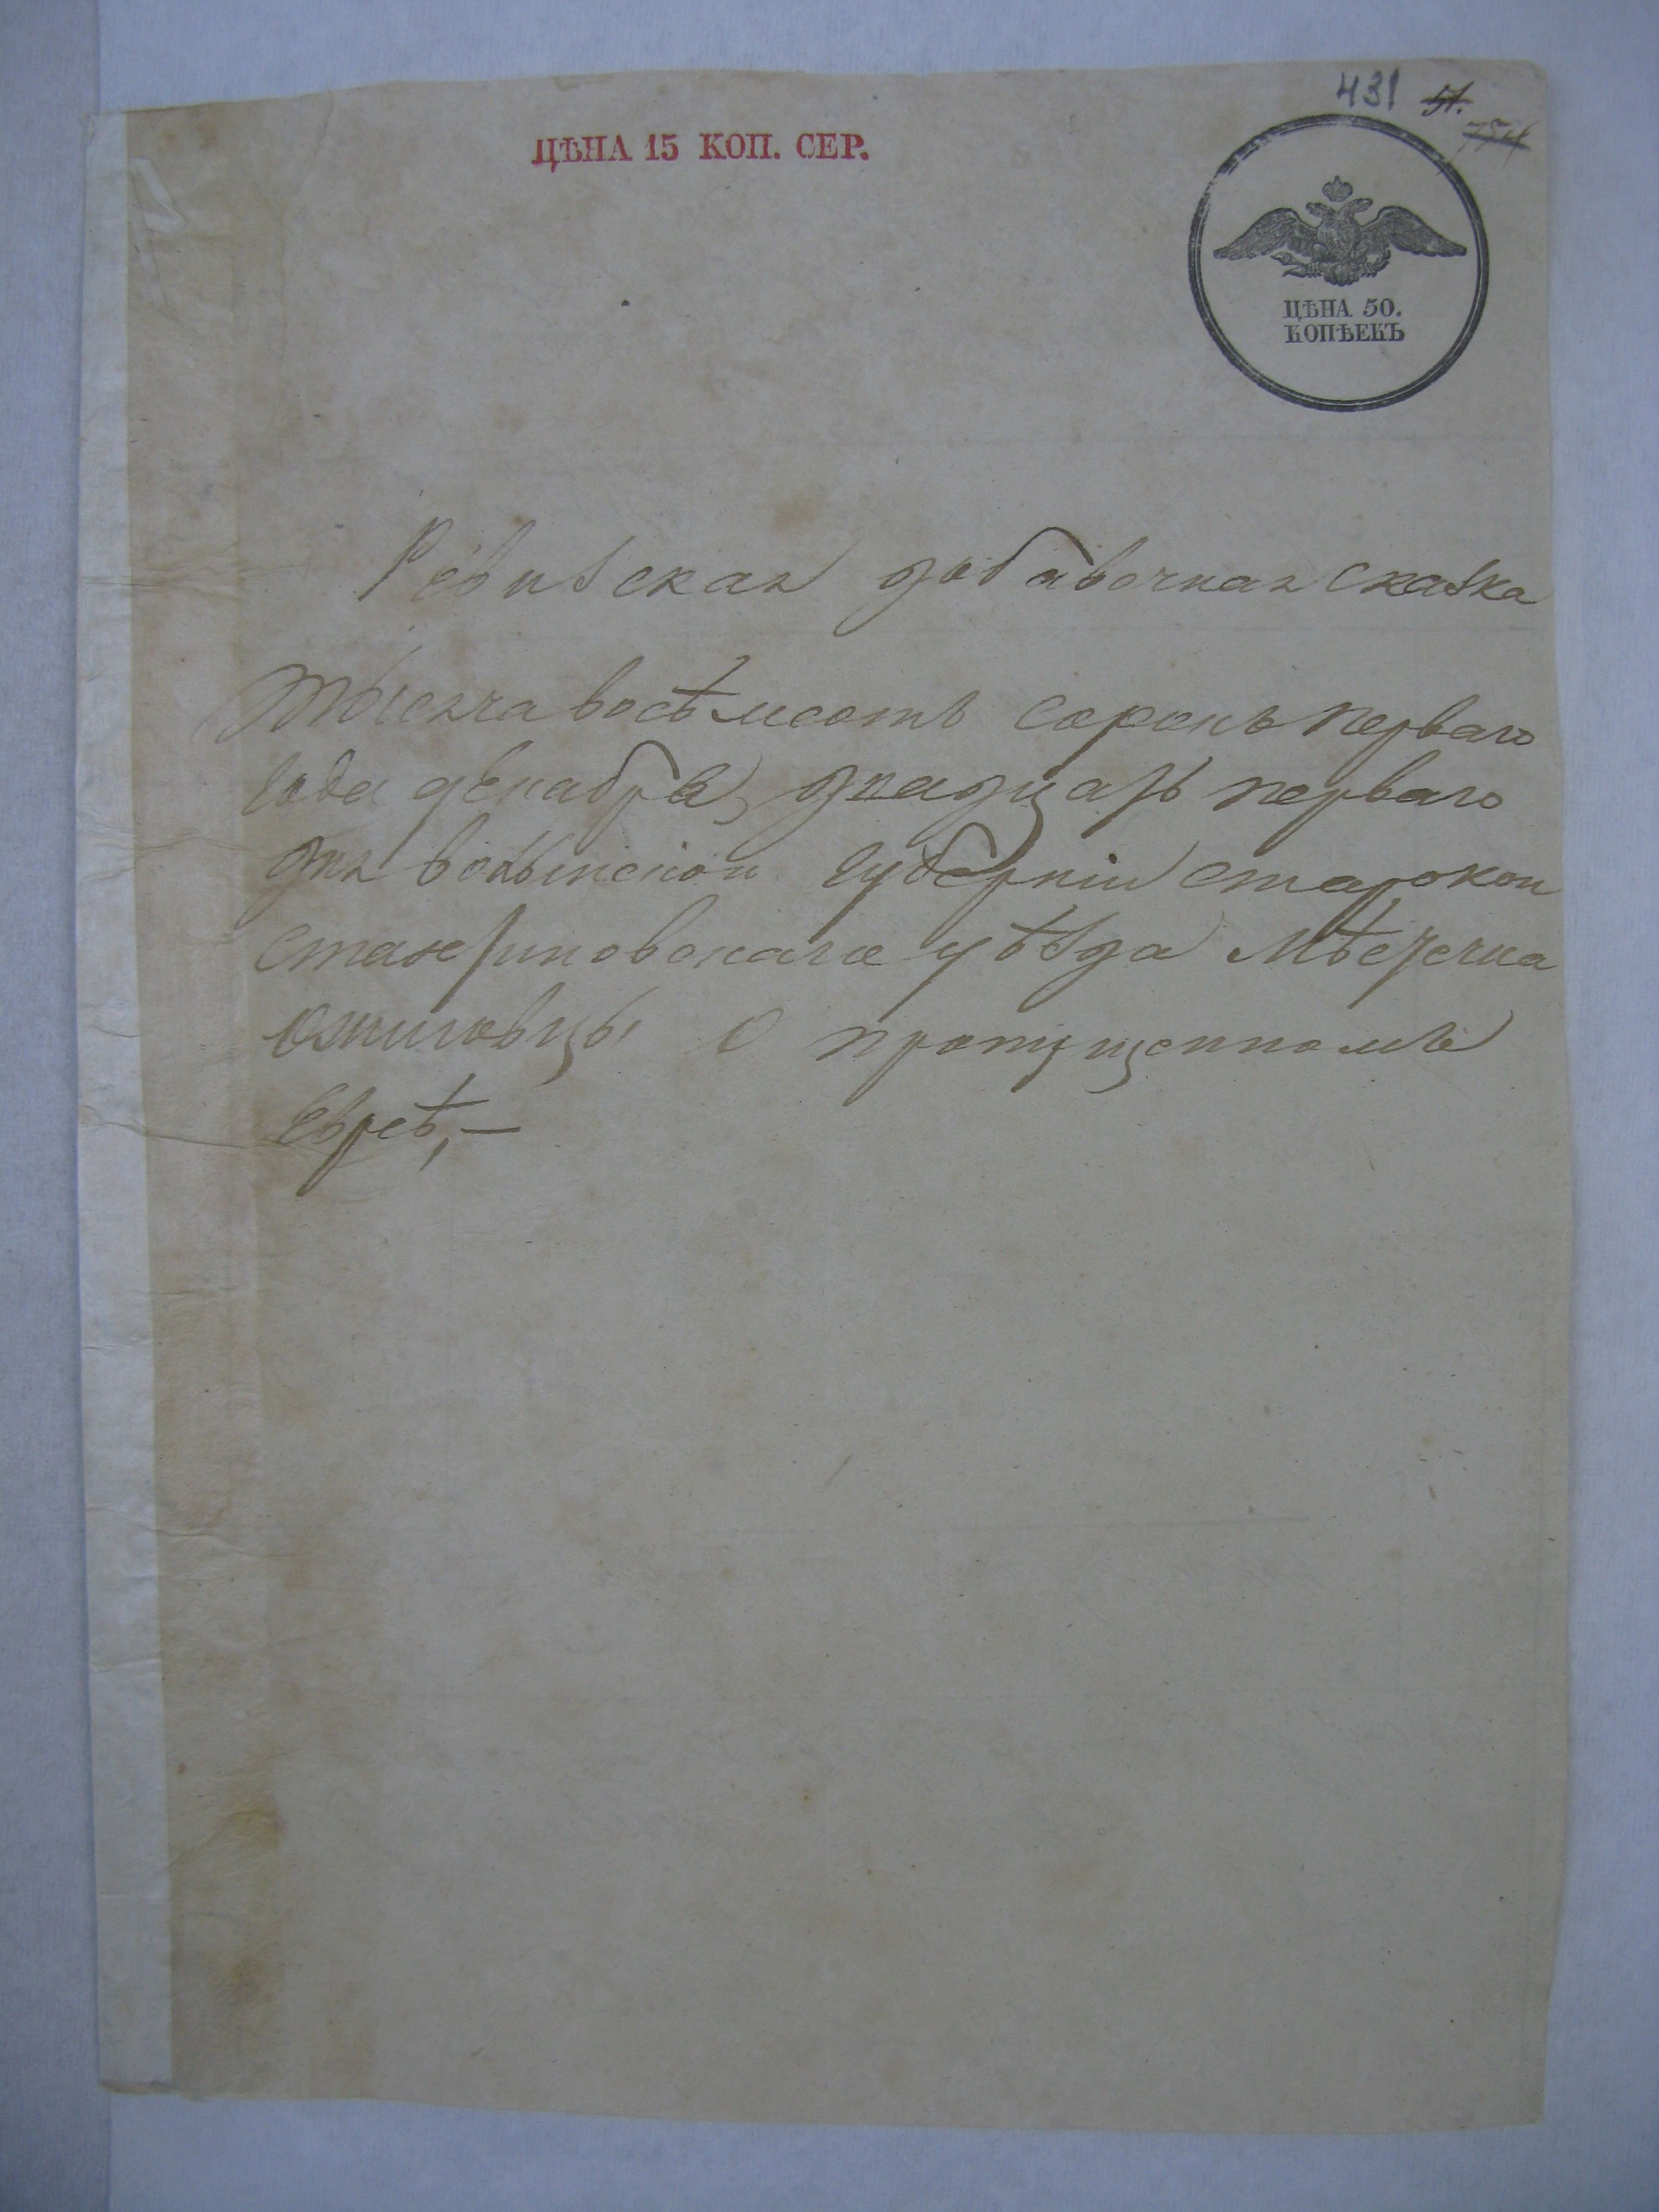 431 51.
754
ЦѢНА 15 КОП. СЕР.
ЦѢНА 50.
КОПѢЕКЪ
Ревизская добавочная сказка
Тысяча восѣмсотъ сорокъ перваго
года декабра двадцать перваго
дня волынской губернiи старокон
стантиновскаго уѣзда мѣстечка
Ожиговцы о пропущенномъ
Еврѣѣ,—